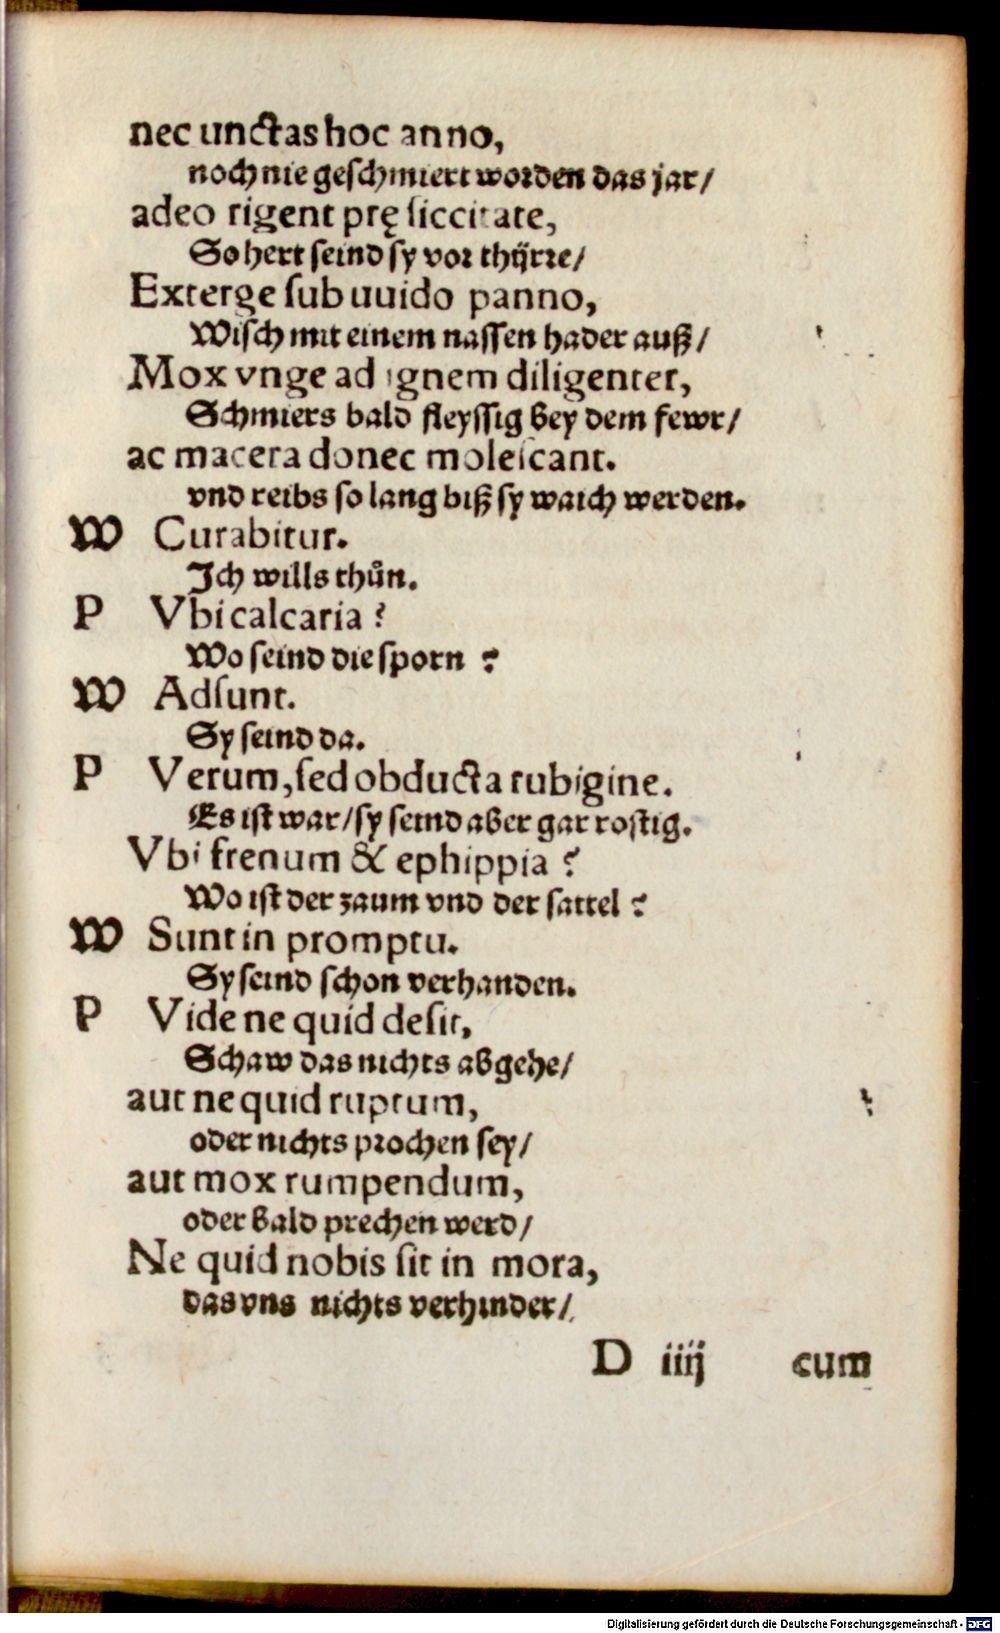 nec unctas hoc anno,
noch nie geschmiert worden das jar/
adeo rigent prę siccitate,
So hert seind sy vor thÿrre/
Exterge sub uuido panno,
Wisch mit einem nassen hader auß/
Mox vnge ad ignem diligenter,
Schmiers bald fleyssig bey dem fewr/
ac macera donec molescant.
vnd reibs so lang biß sy waich werden.
W Curabitur.
Ich wills thůn.
P Vbi calcaria?
Wo seind die sporn?
W Adsunt.
Sy seind da.
P Verum, sed obducta rubigine.
Es ist war/sy seind aber gar rostig.
Vbi frenum & ephippia?
Wo ist der zaum vnd der sattel?
W Sunt in promptu.
Sy seind schon verhanden.
P Vide ne quid desit,
Schaw das nichts abgehe/
aut ne quid ruptum,
oder nichts prochen sey/
aut mox rumpendum,
oder bald prechen werd/
Ne quid nobis sit in mora,
das vns nichts verhinder/
D iiij cum
Digitalisierung gefördert durch die Deutsche Forschungsgemeinschaft - DFG